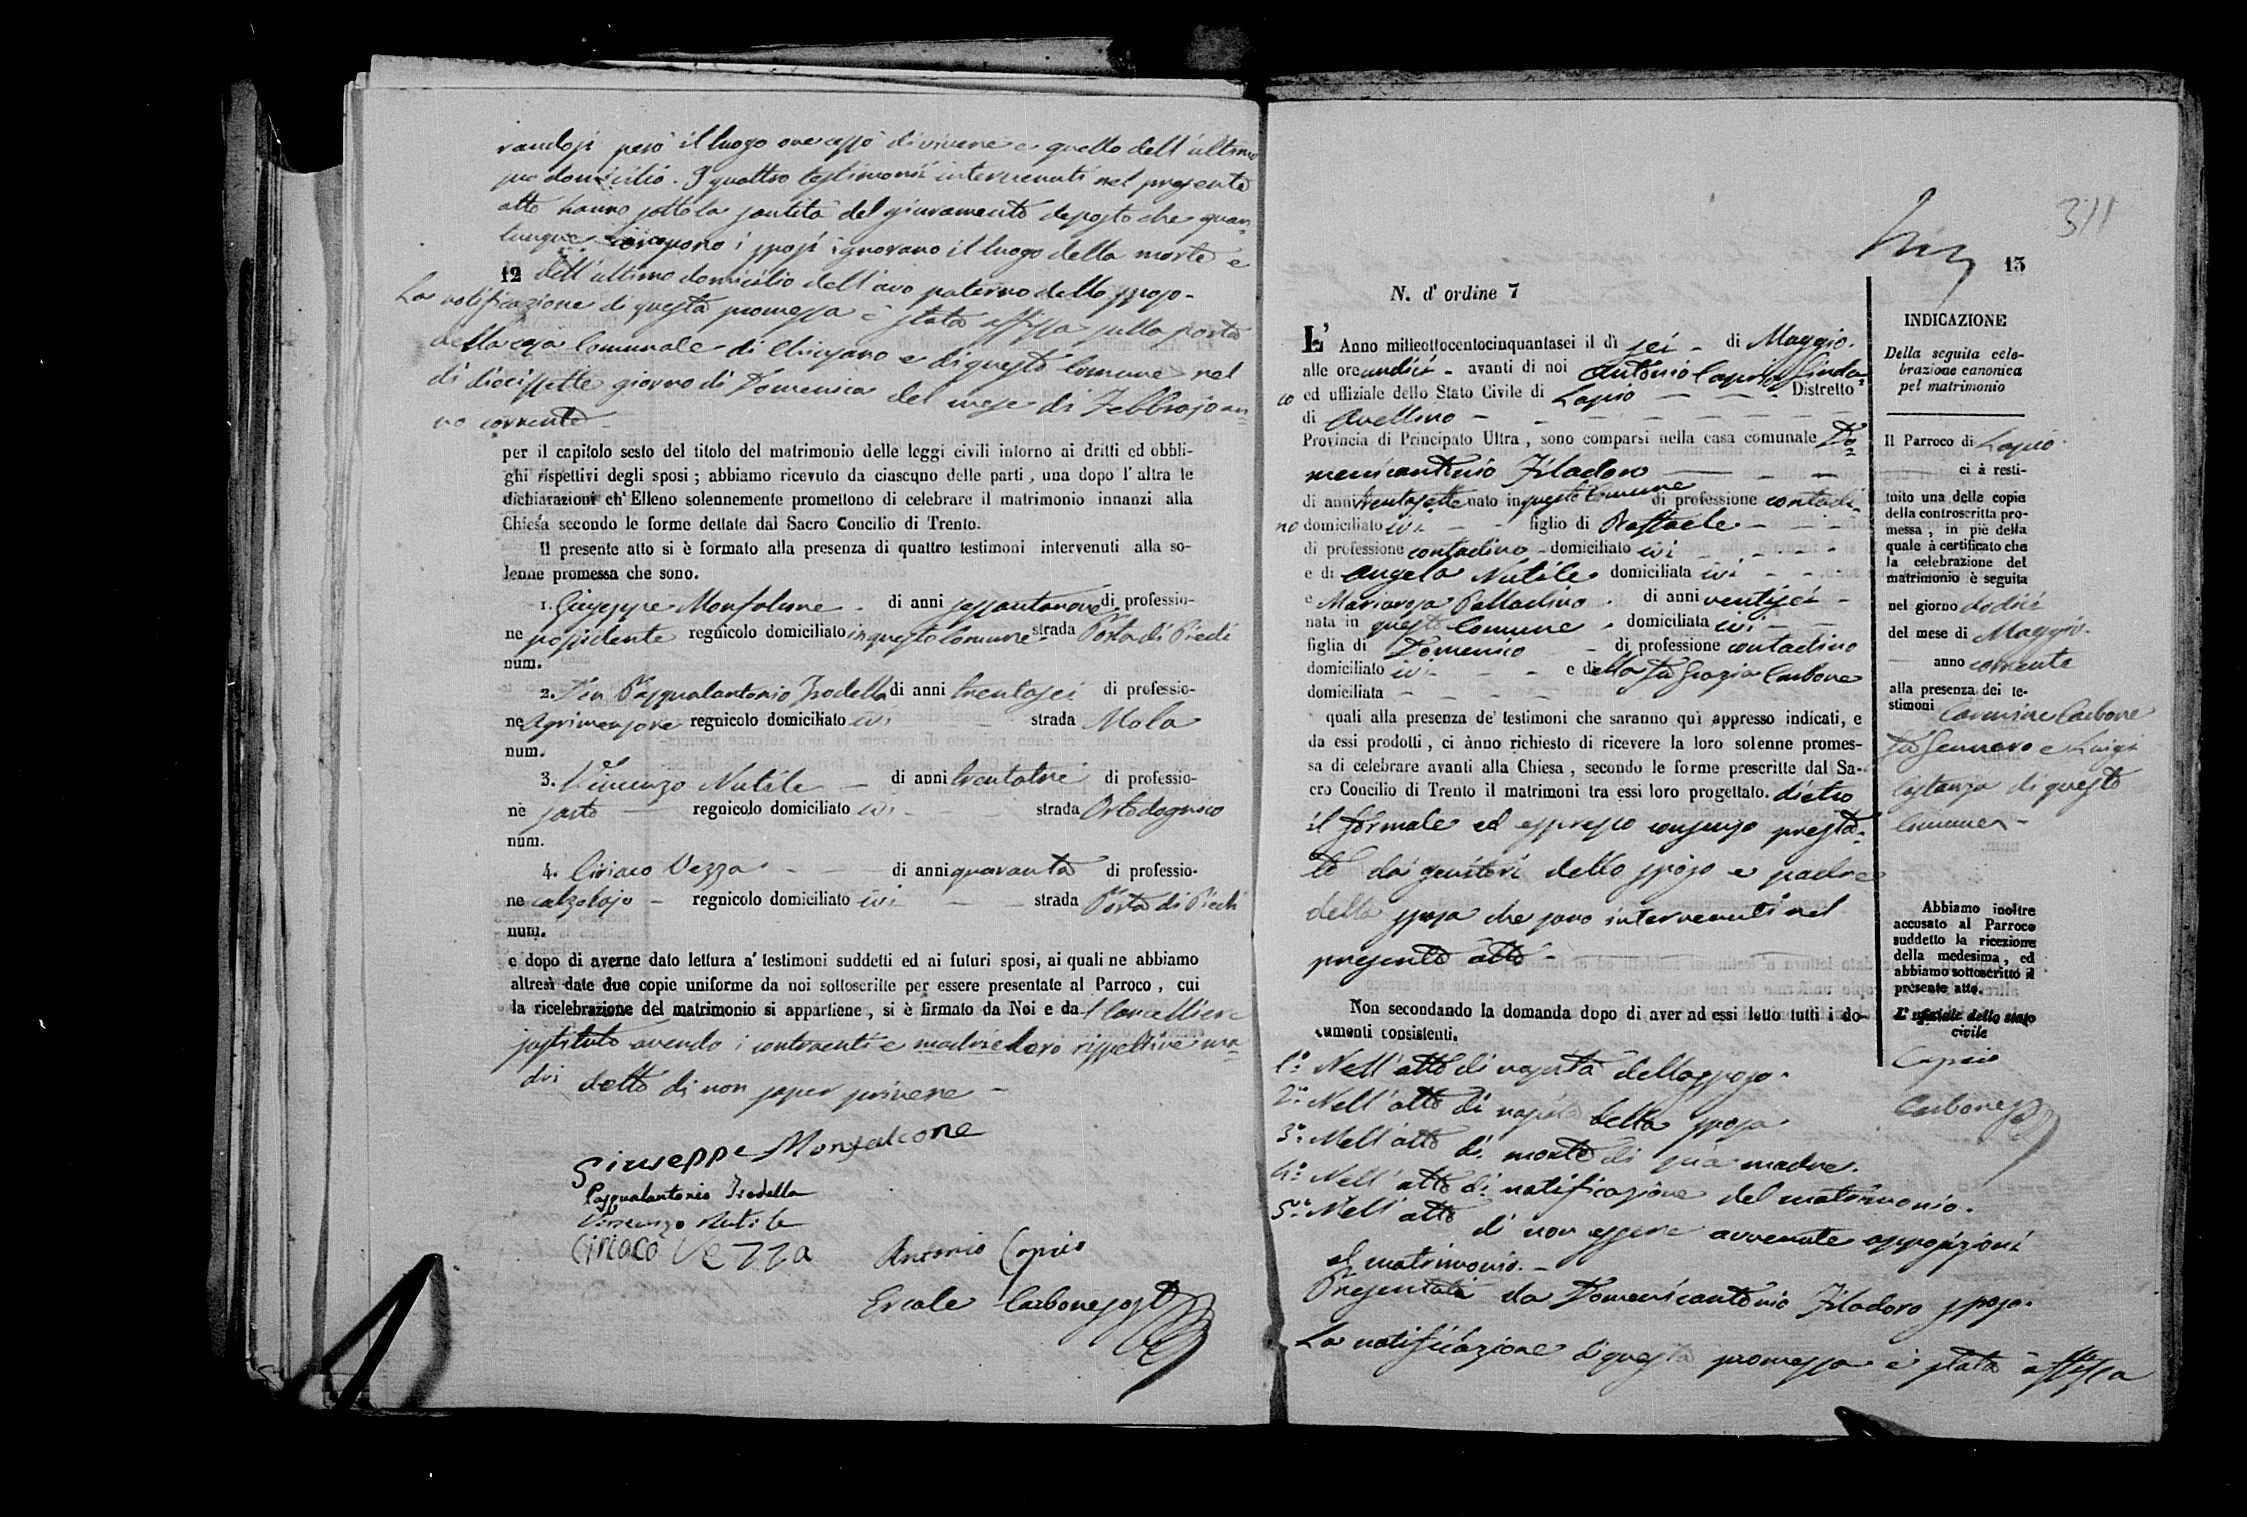 randosi però il luogo ove cessò di vivere e quello dell'ultimo
suo domicilio. I quattro testimonii intervenuti nel presente
atto hanno sotto la santità del giuramento deposto che quan=
tunque conoscono i sposi ignorano il luogo della morte e
12 dell'ultimo domicilio dell'avo paterno dello sposo.
La notificazione di questa promessa è stata affissa sulla porta
della casa Comunale di Chiusano e di questo Comune nel
dì diecissette giorno di Domenica del mese di Febbrajo an=
no corrente
per il capitolo sesto del titolo del matrimonio delle leggi civili intorno ai dritti ed obbli-
ghi rispettivi degli sposi ; abbiamo ricevuto da ciascuno delle parti , una dopo l' altra le
dichiarazioni ch' Elleno solennemente promettono di celebrare il matrimonio innanzi alla
Chiesa secondo le forme dettate dal Sacro Concilio di Trento.
Il presente atto si è formato alla presenza di quattro testimoni intervenuti alla so-
lenne promessa che sono.
1. Giuseppe Monfalcone - di anni sessantanove di professio-
ne possidente regnicolo domiciliato in questo Comune strada Porta di Piedi
num.
2. Don Pasqualantonio Frodella di anni trentasei di professio-
ne Agrimensore regnicolo domiciliato ivi strada Mola
num.
3. Vincenzo Nutile - di anni trentatrè di professio-
ne sarto - regnicolo domiciliato ivi - - strada Ortodognico
num.
4. Ciriaco Vezza - - di anni quaranta di professio-
ne calzolajo - regnicolo domiciliato ivi - - strada Porta di Piedi
num.
e dopo di averne dato lettura a' testimoni suddetti ed ai futuri sposi, ai quali ne abbiamo
altresì date due copie uniforme da noi sottoscritte per essere presentate al Parroco , cui
la ricelebrazione del matrimonio si appartiene , si è firmato da Noi e dal Cancelliere
sostituto avendo i contraenti e loro rispettive ma=
dri detto di non saper scrivere -
Giuseppe Monfalcone
Pasqualantonio Frodella
Vincenzo Nutile
Ciriaco Vezza
Antonio Caprio
Ercole Carbone sost
311
13
N. d' ordine 7
L' Anno milleottocentocinquantasei il dì sei - di Maggio.
alle ore undici - avanti di noi Antonio Caprio Sinda=
co ed uffiziale dello Stato Civile di Lapio - - Distretto
di Avellino - - - -
Provincia di Principato Ultra , sono comparsi nella casa comunale Do=
menicantonio Filadoro - - -
di anni trentasette nato in questo Comune di professione contadi=
no domiciliato ivi - - figlio di Raffaele - - -
di professione contadino - domiciliato ivi - - - -
e di Angela Nutile domiciliata ivi - - -
e Mariarosa Palladino . di anni ventisei -
nata in questo Comune . domiciliata ivi - -
figlia di Domenico - di professione contadino
domiciliato ivi - - e della fu Grazia Carbone
domiciliata - - - -
quali alla presenza de' testimoni che saranno quì appresso indicati, e
da essi prodotti , ci ànno richiesto di ricevere la loro solenne promes-
sa di celebrare avanti alla Chiesa , secondo le forme prescritte dal Sa-
cro Concilio di Trento il matrimoni tra essi loro progettato. dietro
il formale ed espresso consenso presta=
to da' genitori dello sposo e padre
della sposa che sono intervenuti nel
presente atto -
Non secondando la domanda dopo di aver ad essi letto tutti i do-
cumenti consistenti.
1.° Nell'atto di nascita dello sposo.
2.° Nell'atto di nascita della sposa
3.° Nell'atto di morte di sua madre.
4.° Nell'atto di notificazione del matrimonio.
5.° Nell'atto di non essere avvenute opposizioni
al matrimonio. -
Presentati da Domenicantonio Filadoro sposo.
La notificazione di questa promessa è stata affissa
INDICAZIONE
Della seguita cele-
brazione canonica
pel matrimonio
Il Parroco di Lapio.
ci à resti-
tuito una delle copie
della controscritta pro-
messa , in piè della
quale à certificato che
la celebrazione del
matrimonio è seguita
nel giorno dodici
del mese di Maggio.
anno corrente
alla presenza dei te-
stimoni Carmine Carbone
fu Gennaro e Luigi
Costanza di questo
Comune -
Abbiamo inoltre
accusato al Parroco
suddetto la ricezione
della medesima , ed
abbiamo sottoscritto il
presente atto.
L' uffiziale dello stato
civile
Caprio
Carbone